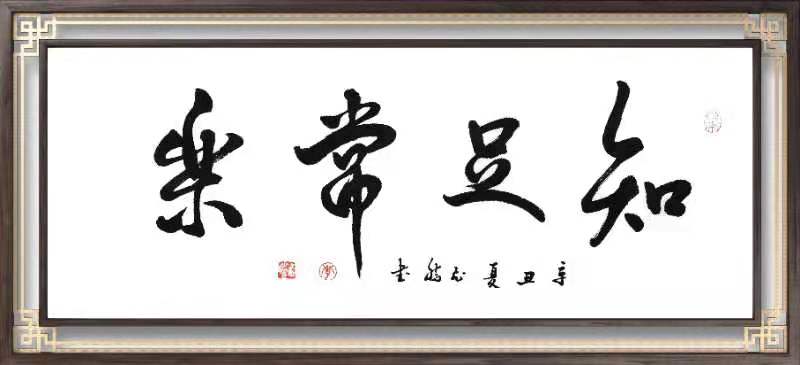 知足常樂
辛丑夏志書